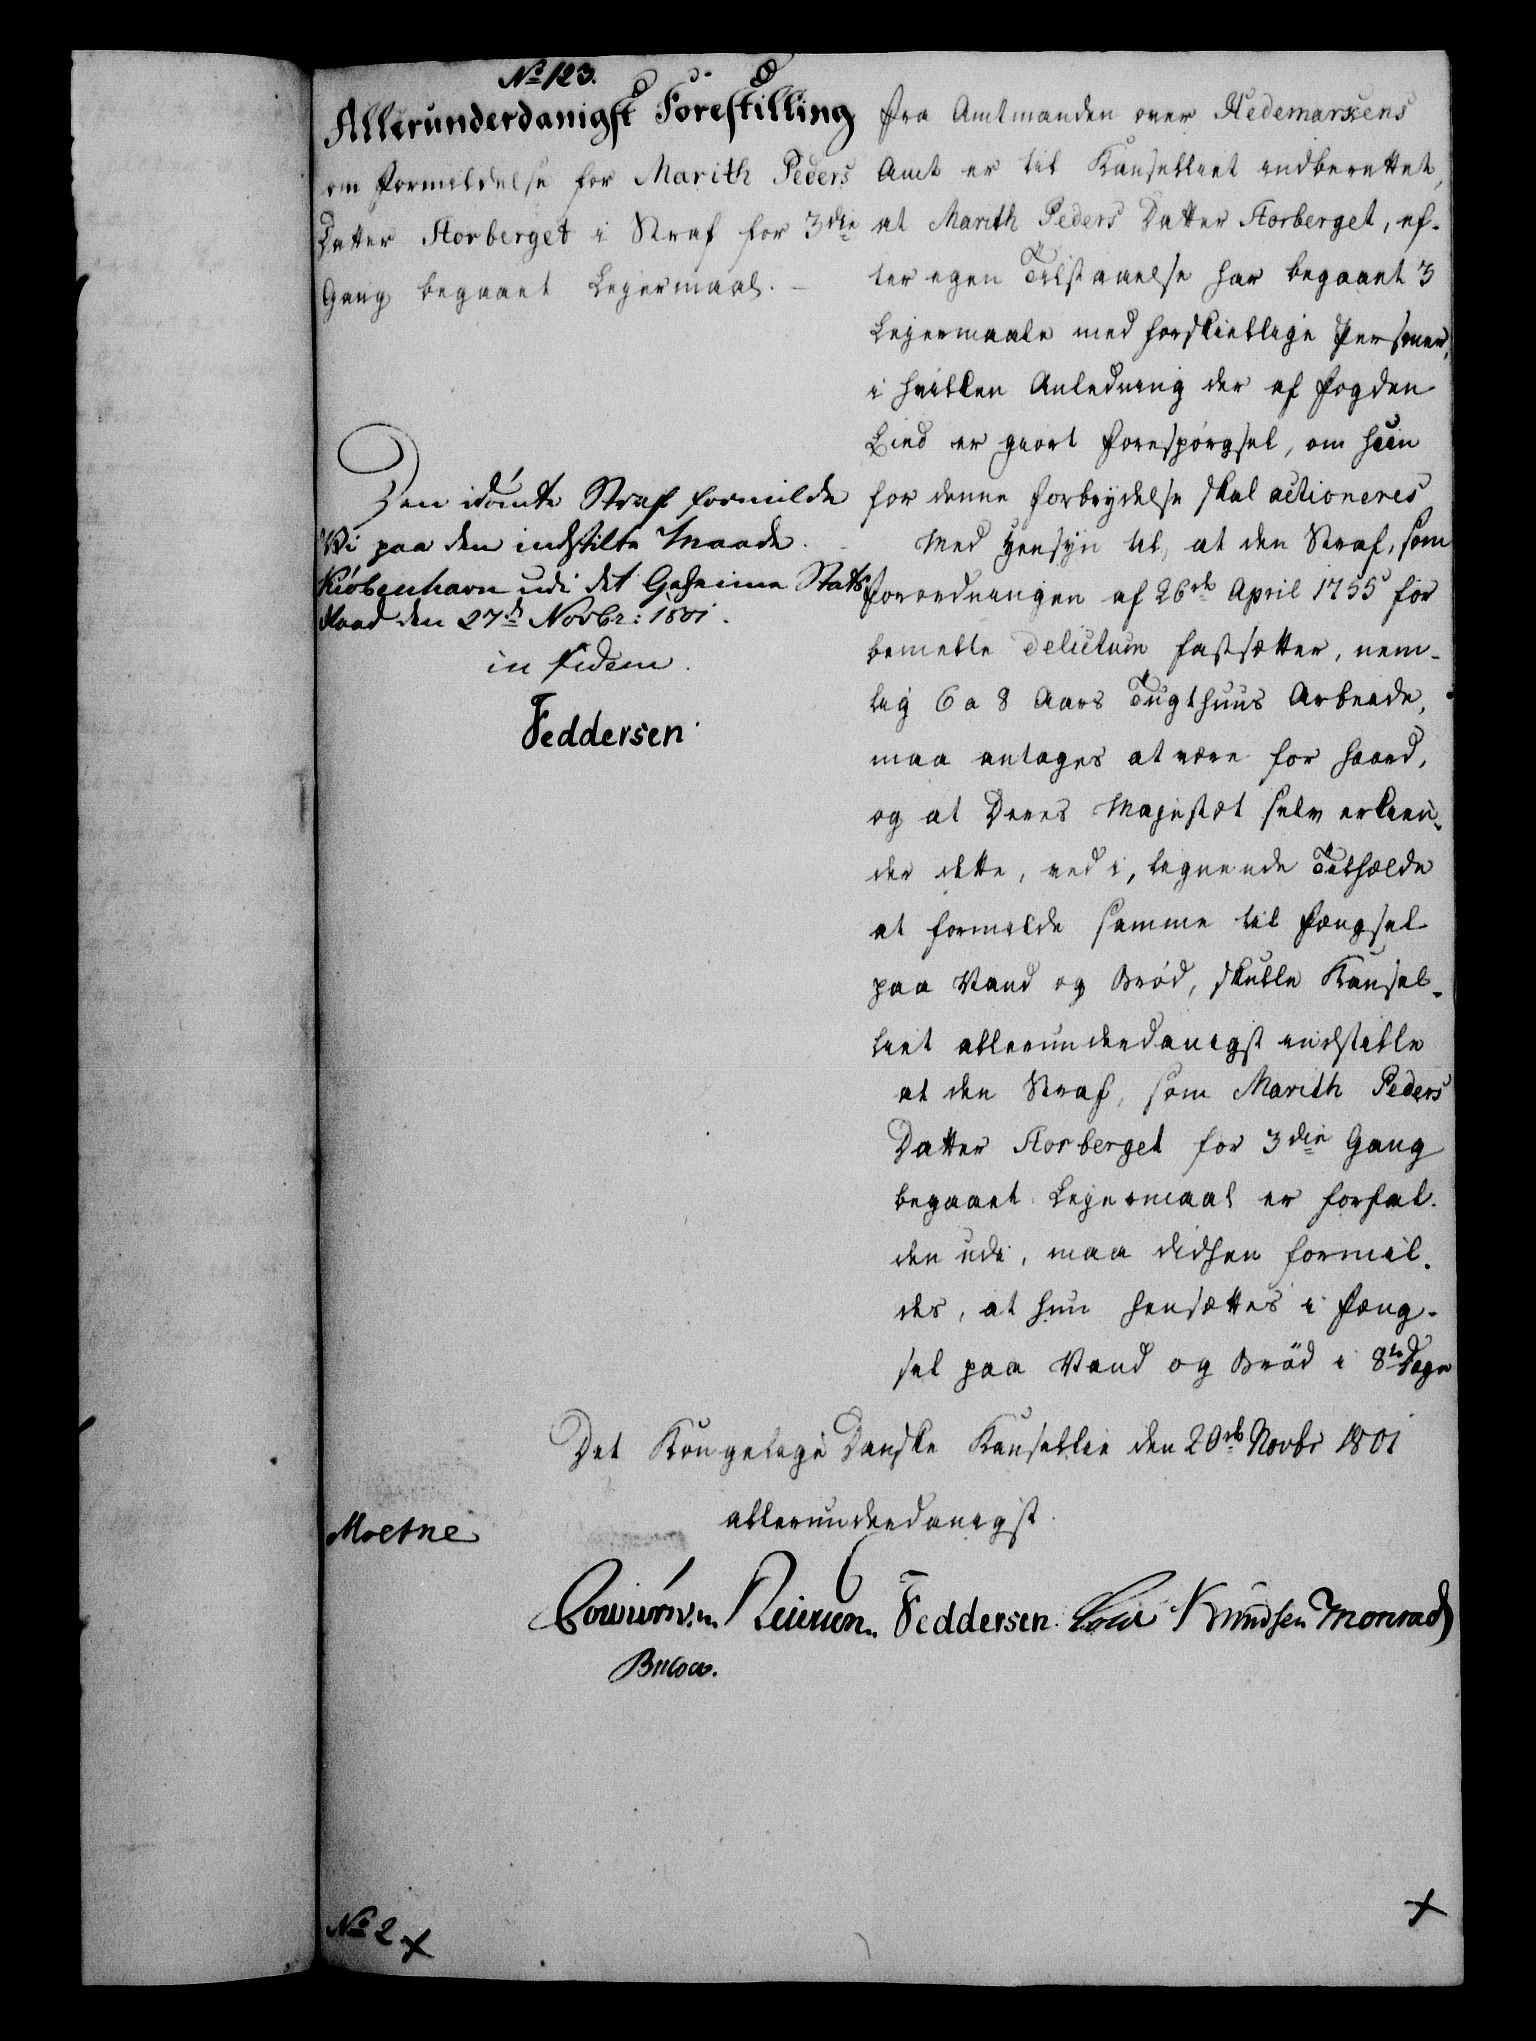 No 123.
Allerunderdanigst Forestilling
om Formildelse for Marith Peders
Datter Storberget i Straf for 3die
Gang begaaet Lejermaal. -
Den idömte Straf formilde
Vi paa den indstilte Maade.
Kiöbenhavn udi det Geheime Stats
Raad den 27de Novbr: 1801.
in fidem.
Feddersen.
Fra Amtmanden over Hedemarkens
Amt er til Kanselliet indberettet,
at Marith Peders Datter Storberget, ef-
ter egen Tilstaaelse har begaaet 3
Lejermaale med forskiellige Personer,
i hvilken Anledning der af Fogden
Lind er giort Forespørgsel, om hun
for denne Forbrydelse skal actioneres
Med Hensyn til, at den Straf, som
Forordningen af 26de April 1755 for
bemelte Delictum fastsætter, nem-
lig 6 a 8 Aars Tugthuus Arbeide,
maa antages at være for haard,
og at Deres Majestæt selv erkien-
der dette, ved i, lignende Tilfælde
at formilde samme til Fængsel
paa Vand og Brød, skulle Kansel-
liet allerunderdanigst indstille
at den Straf, som Marith Peders
Datter Storberget for 3die Gang
begaaet Lejermaal er forfal-
den udi, maa didhen formil-
des, at hun hensættes i Fæng-
sel paa Vand og Brød i 8te Dage
Det Kongelige Danske Kansellie den 20de Novbr 1801
allerunderdanigst.
Moetne
Feddersen. Knudsen Monrad
Bülow.
No 2 +
+